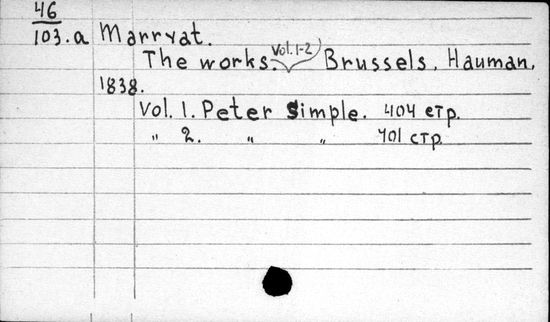 46
103.a Marryat.
The works. Vol. 1-2 Brussels, Hauman,
1838.
Vol. 1. Peter Simple. 404 стр.
„ 2. „ „ 401 стр.